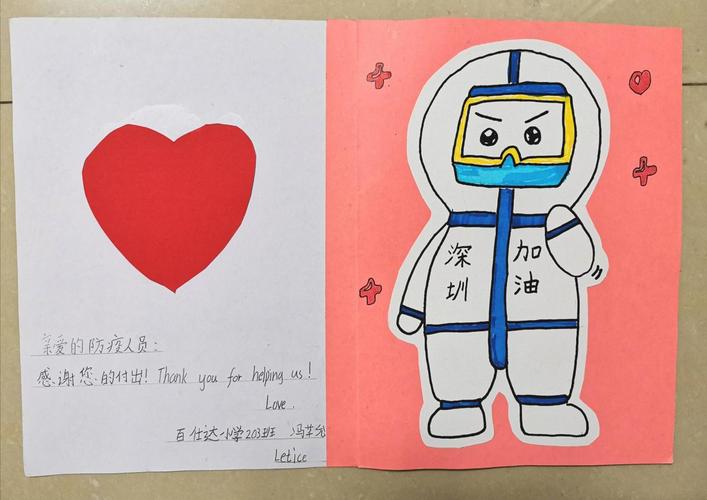 亲爱的防疫人员:
感谢您的付出! Thank you for helping us!
Love.
百仕达小学203班 冯芊
Letice
深圳
加油